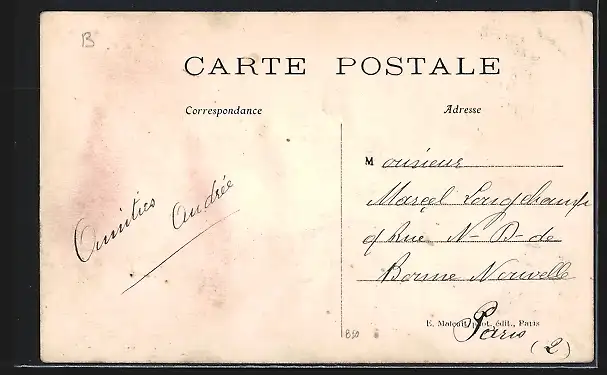 B
CARTE POSTALE
Correspondance
Adresse
Amitiés Andrée
Monsieur
Marcel Longchamps
9 Rue N-D-de
Bonne Nouvelle
E. phot. édit., Paris
Paris
(2)